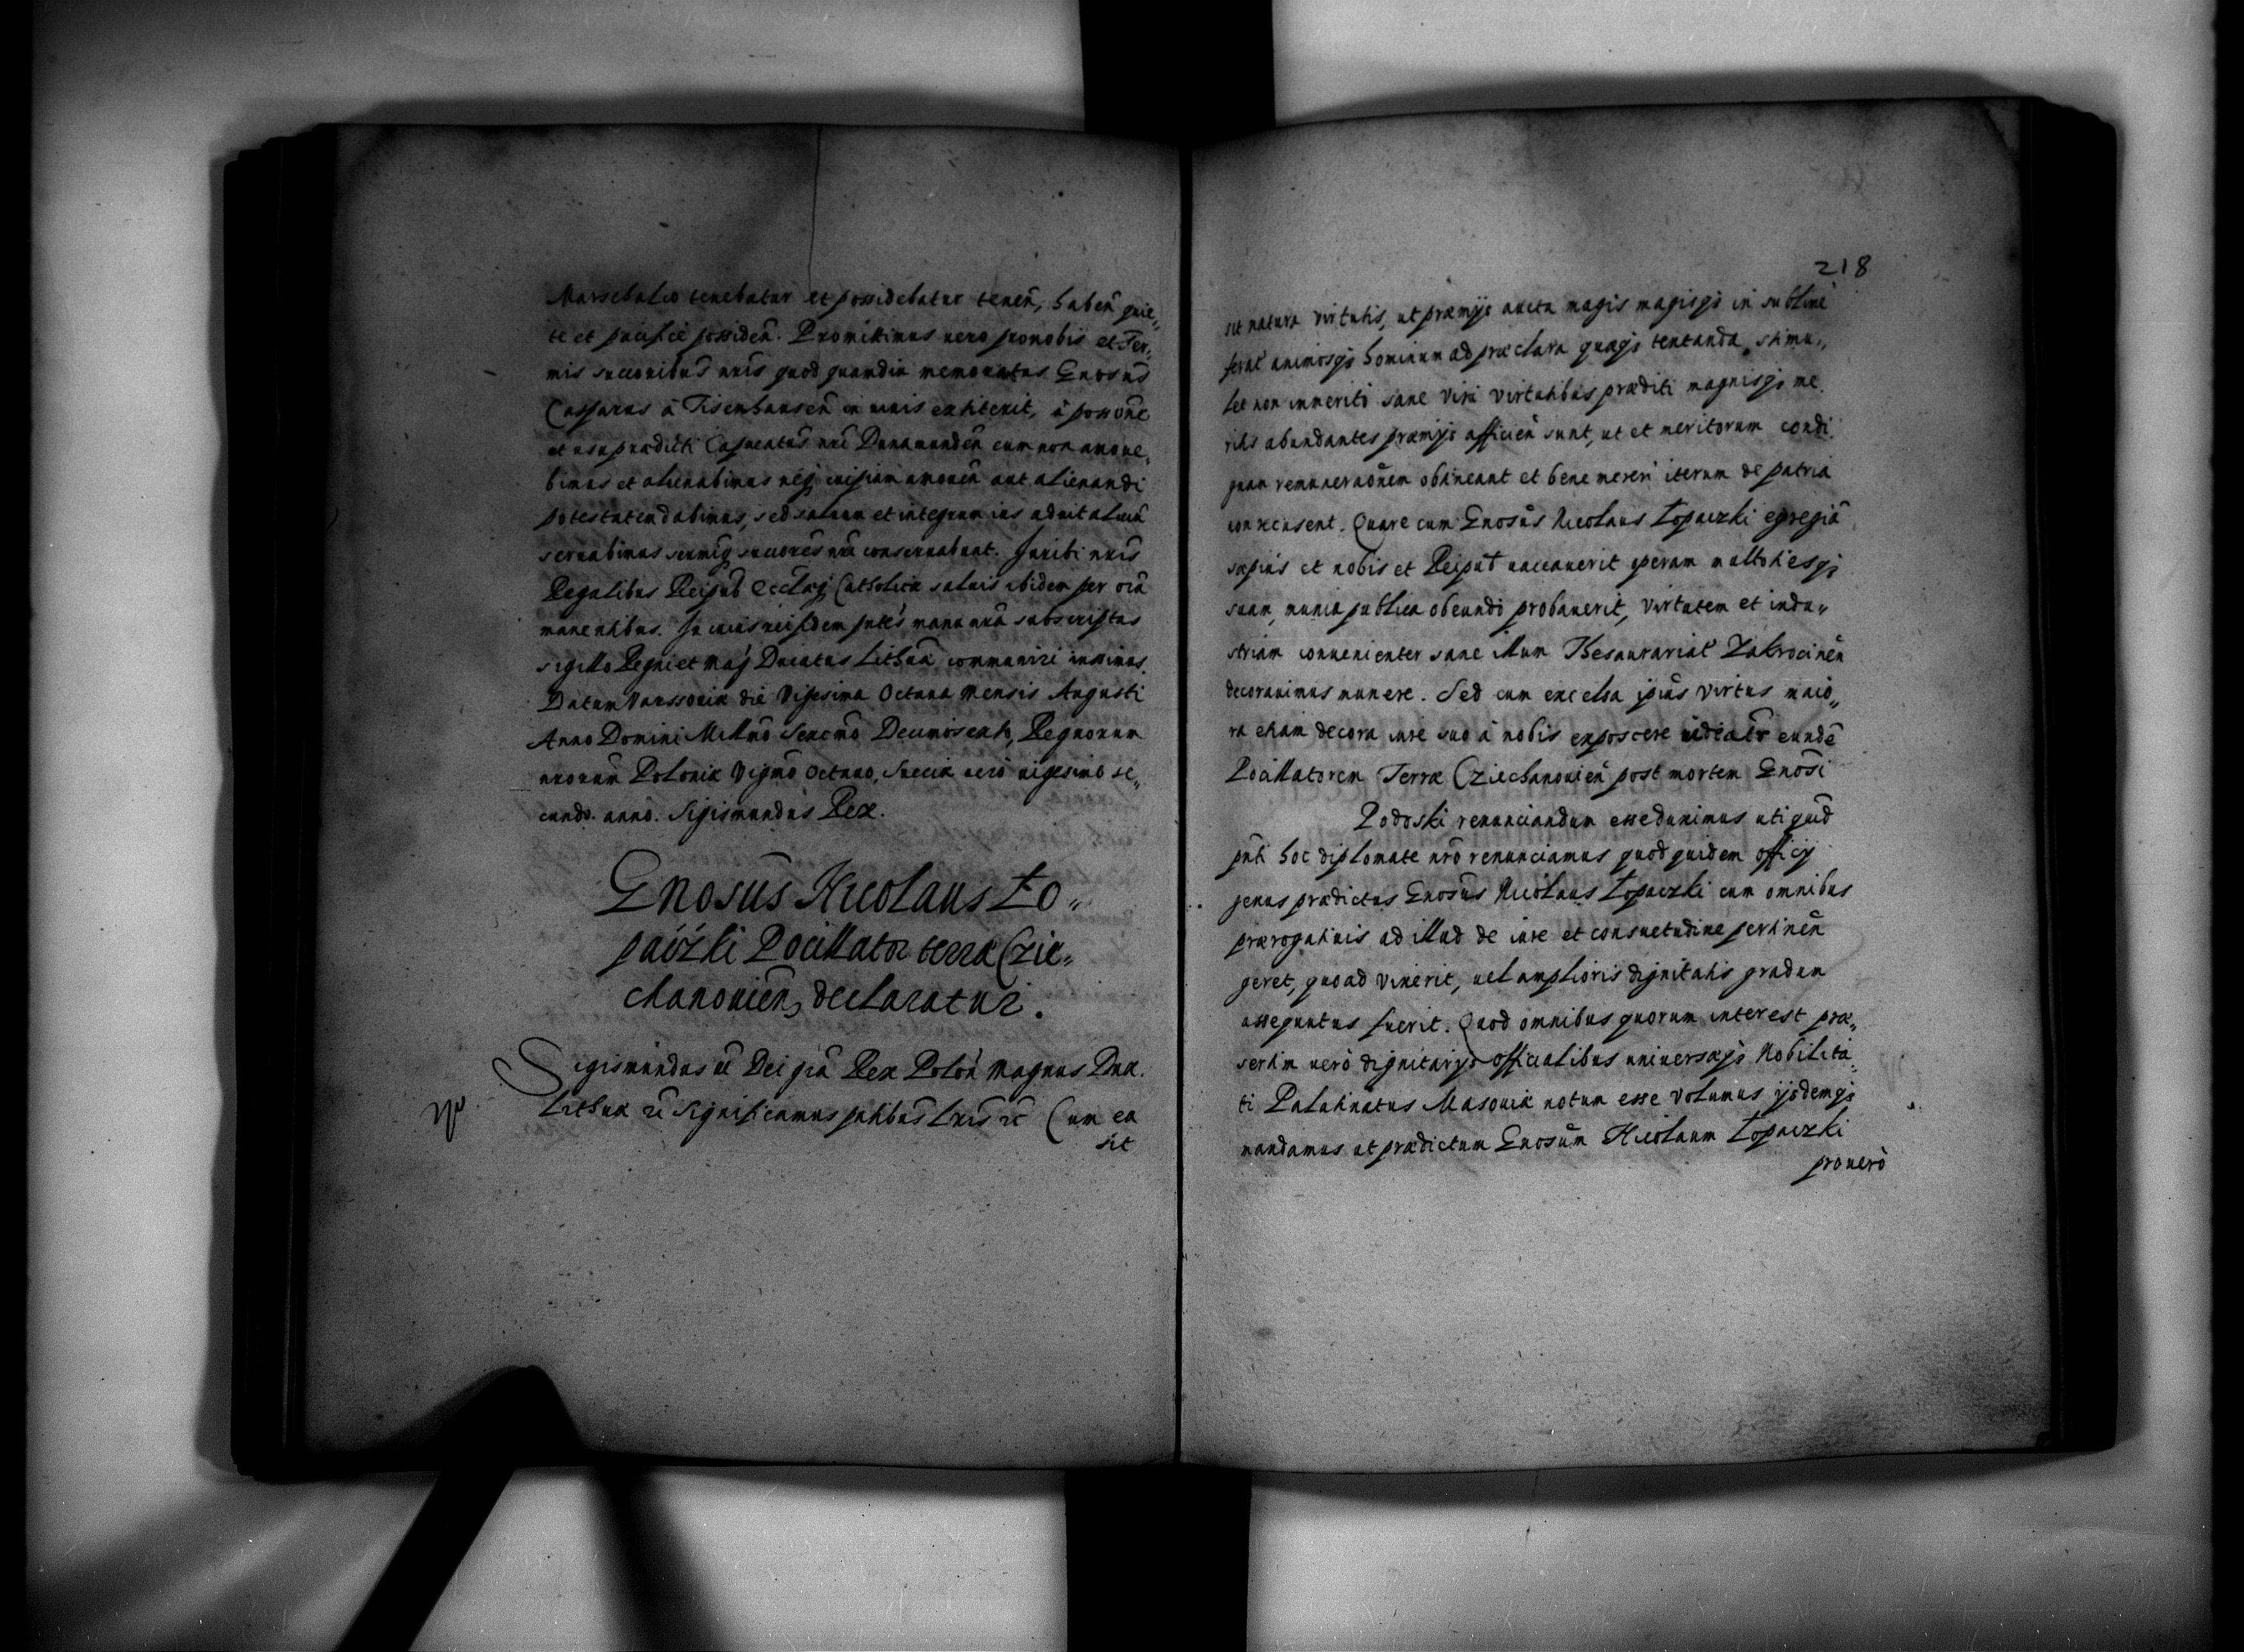 Marschalco tenebatur et possidebatur tenen̄, haben̄ quie„
te et pacifice possiden̄. Promittimus vero pro nobis et Ser„
mis successoribus nr̄is quod quamdiu memoratus Gnosus
Casparus à Tisenhausen in vivis extiterit, à possone
et usu prædicti Capneatus nr̄i Dunamunden̄ eum non amove„
bimus et alienabimus neq̨ cuipiam amoven̄ aut alienandi
potestatem dabimus, sed salvum et integrum ius advitalium
servabimus sermiq̨ succores nr̄i conservabunt. Juribus nr̄is
Regalibus Reipub Ecclæq̨ Catholicæ salvis ibidem per oia
manentibus. In cuius rei fidem pntes manu nrā subscriptas
sigillo Regni et Mag Ducatus Lithuæ communiri iussimus.
Datum Varssoviæ die Vigesima Octava Mensis Augusti
Anno Domini Millmo Sexcmo Decimosexto, Regnorum
nrorum Poloniæ Vigmo octavo, Sueciæ vero vigesimo se„
cundo. anno. Sigismundus Rex.
Gnosus Nicolaus Ło„
paczki Pocillator terræ Czie„
chanovien̄, declaratur.
Sigismundus III Dei grā Rex Polon̄ Magnus Dux.
Lithuæ etc̄ Significamus pntibus Lris etc̄ Cum ea
sit
218
sit natura virtutis, ut præmys aucta magis magisq̨ in sublime
ferat animosq̨ hominum ad præclara quæq̨ tentanda stimu„
let non immerito sane viri virtutibus præditi magnisq̨ me
ritis abundantes præmys afficien̄ sunt, ut et meritorum condi
gnam remunerāonem obtineant et bene mereri iterum de patria
non recusent. Quare cum Gnosus Nicolaus Łopaczki egregiā
sæpius et nobis et Reipub navaverit operam multotiesq̨
suam, munia publica obeundo probaverit, virtutem et indu„
striam convenienter sane illum Thesaurariat Zakrocinen̄
decoravimus munere. Sed cum excelsa ipius virtus maio„
ra etiam decora iure suo à nobis exposcere eundē
Pocillatorem Terræ Cziechanovien̄ post mortem Gnosi
Podoski renunciandum esse duximus uti quid
pnti hoc diplomate nrō renunciamus quod quidem officy
genus prædictus Gnosus Nicolaus Łopaczki cum omnibus
prærogativis ad illud de iure et consuetudine pertinen̄
geret, quoad vixerit, vel amplioris dignitatis gradum
assequutus fuerit. Quod omnibus quorum interest præ„
sertim vero dignitarys officialibus universæq̨ Nobilita
ti Palatinatus Masoviæ notum esse volumus ysdemq̨
mandamus ut prædictum Gnosum Nicolaum Łopaczki
pro vero